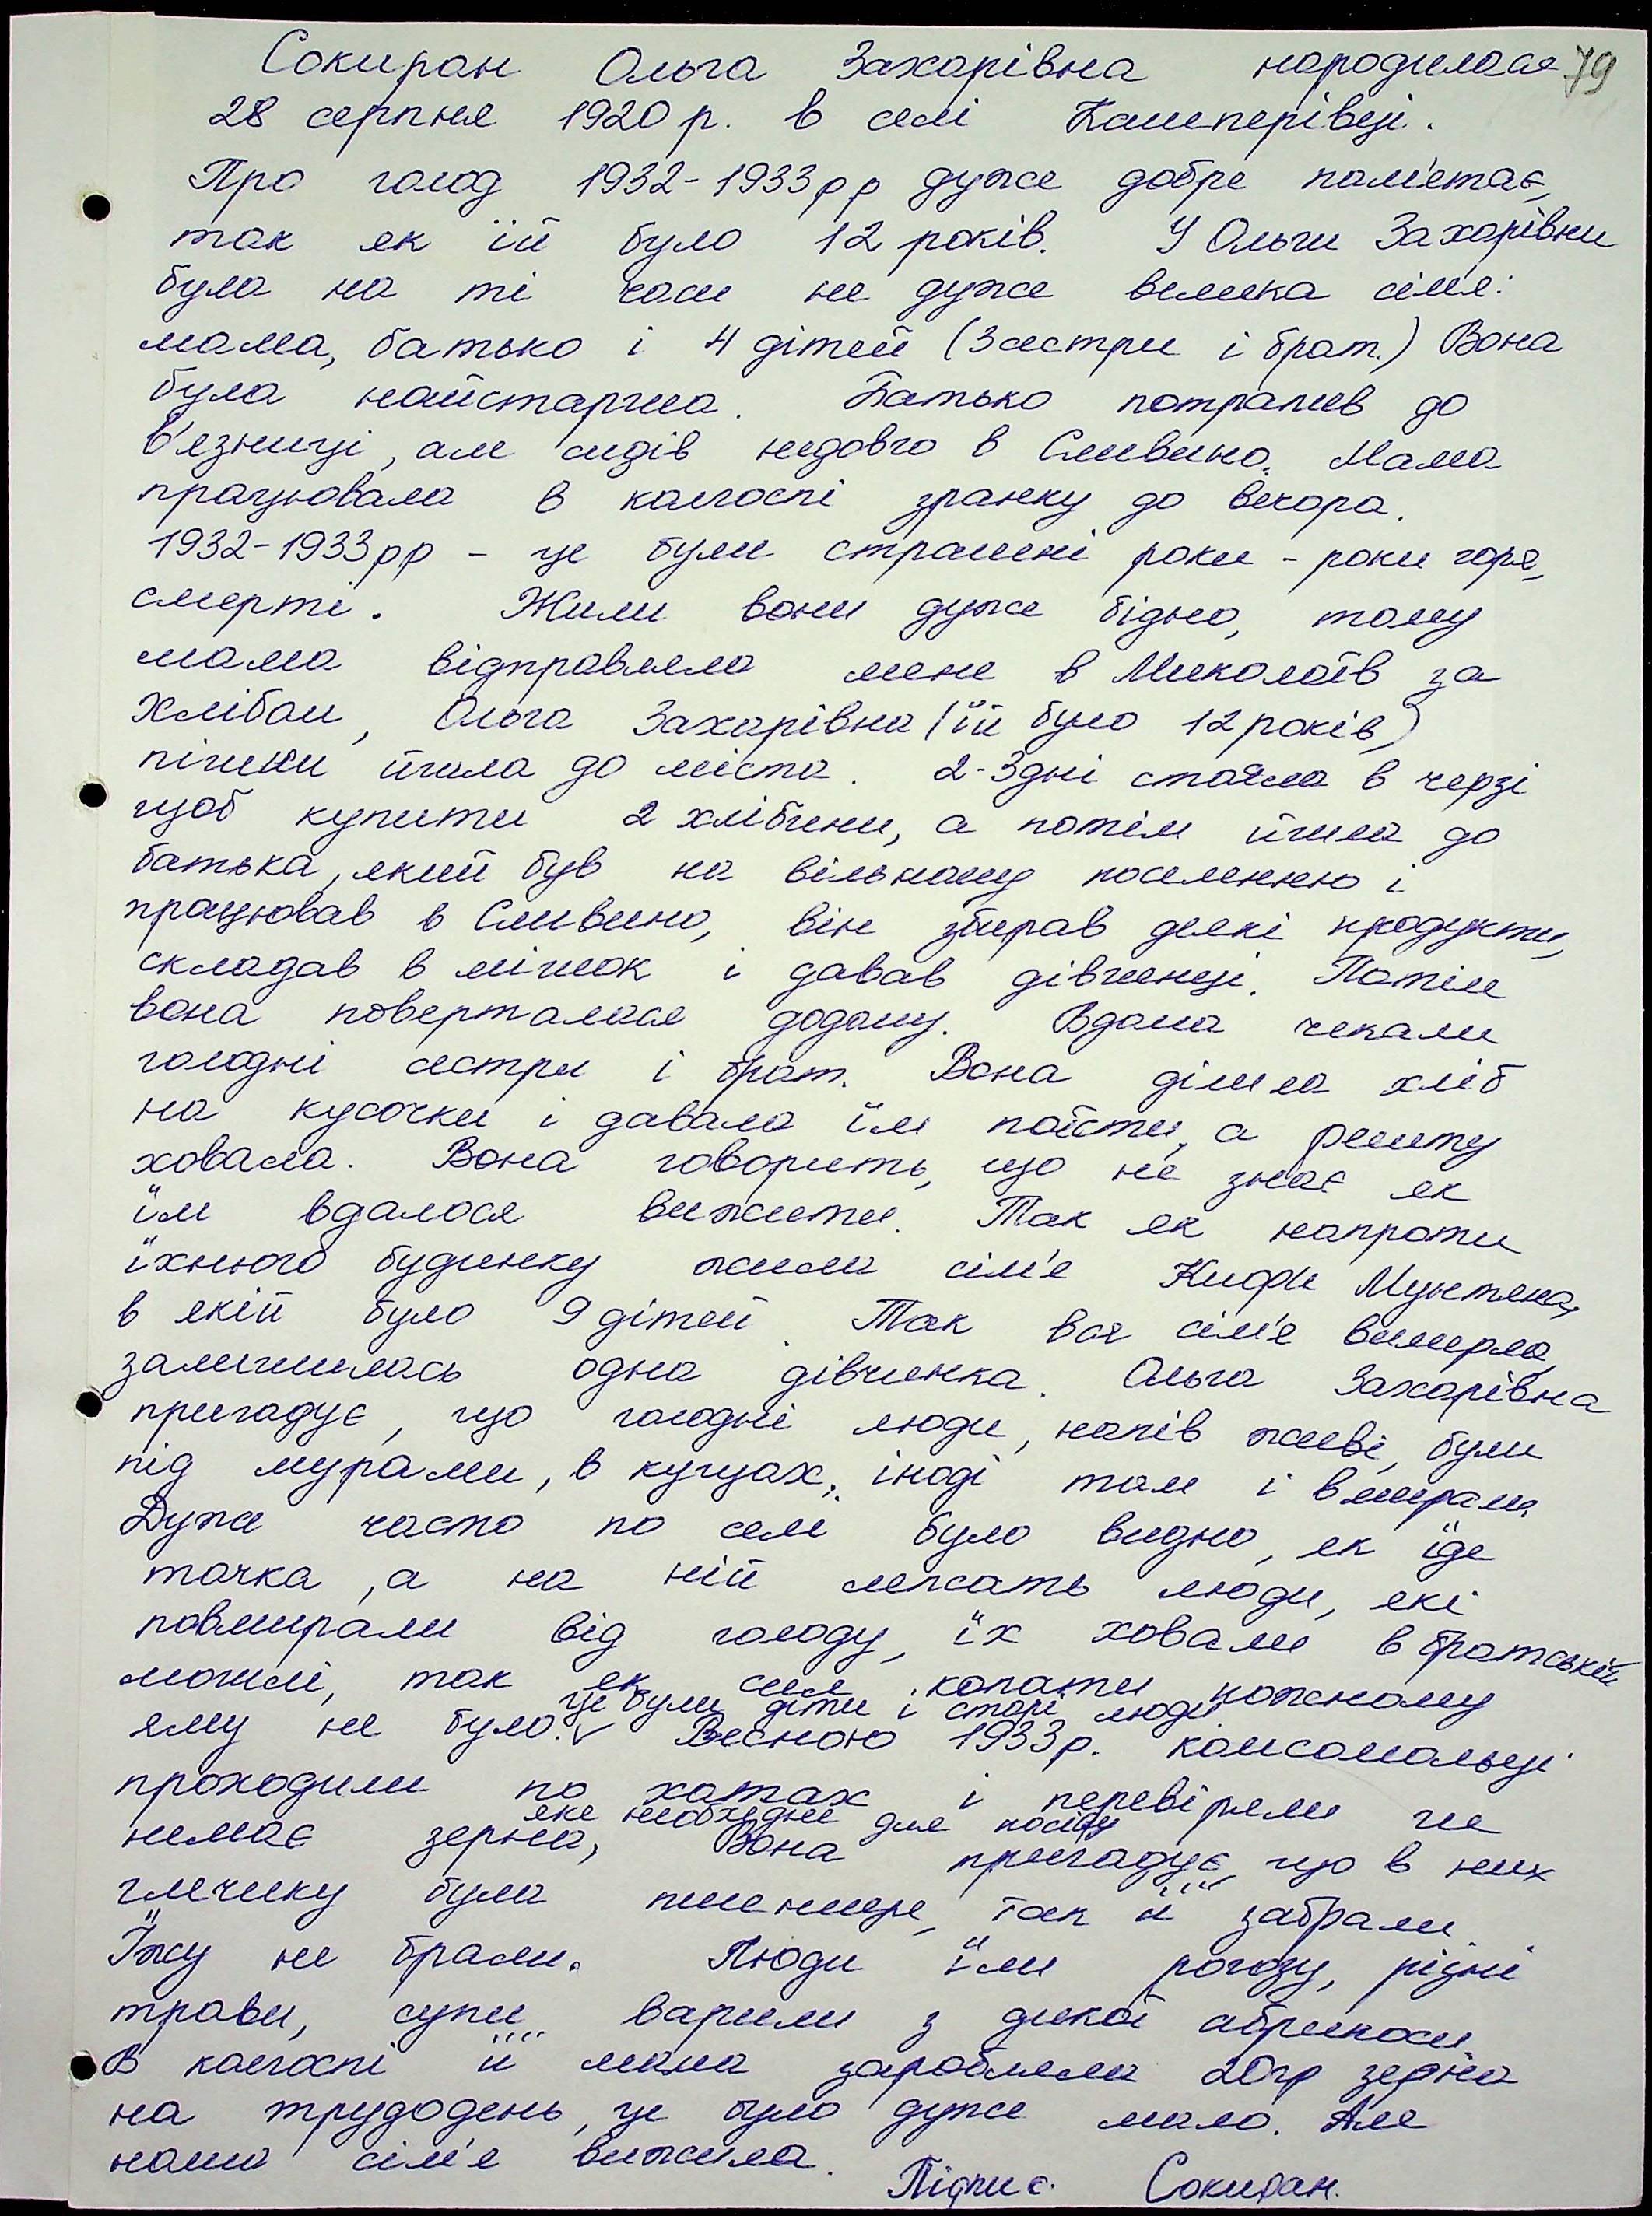 Сокиран Ольга Захарівна народилася 79
28 серпня 1920 р. в селі Кашперівці.
Про голод 1932-1933рр дуже добре пам'ятає,
так як їй було 12 років. У Ольги Захарівни
була на ті часи не дуже велика сім'я:
мама, батько і 4 дітей (3 сестри і брат.) Вона
була найстарша. Батько потрапив до
в'язниці, але сидів недовго в Сливино. Мама
працювала в колгоспі зранку до вечора.
1932-1933рр - це були страшні роки - роки горя,
смерті. Жили вони дуже бідно, тому
мама відправляла мене в Миколаїв за
хлібом, Ольга Захарівна (їй було 12 років)
пішки йшла до міста. 2-3дні стояла в черзі
щоб купити 2 хлібини, а потім йшла до
батька, який був на вільному поселенню і
працював в Сливино, він збирав деякі продукти,
складав в мішок і давав дівчинці. Потім
вона поверталася додому. Вдома чекали
голодні сестри і брат. Вона ділила хліб
на кусочки і давала їм поїсти, а решту
ховала. Вона говорить, що не знає як
їм вдалося вижити. Так як напроти
їхнього будинку жила сім'я Кифи Мунтяна,
в якій було 9 дітей. Так вся сім'я вимерла,
залишилась одна дівчинка. Ольга Захарівна
пригадує, що голодні люди, напів живі, були
під мурами, в кущах, іноді там і вмирали.
Дуже часто по селі було видно, як їде
тачка, а на ній лежать люди, які
повмирали від голоду, їх ховали в братській
могилі, так як сил копати кожному
яму не було. це були діти і старі люди. Весною 1933р. комсомольці
проходили по хатах і перевіряли чи
немає зерна, яке необхідне для посіву Вона пригадує, що в них
глечику була пшениця, так її забрали.
Їжу не брали. Люди їли рогозу, різні
трави, супи варили з дикої абрикоси.
В колгоспі її мама заробляла 20гр зерна
на трудодень, це було дуже мало. Але
наша сім'я вижила.
Підпис. Сокиран.